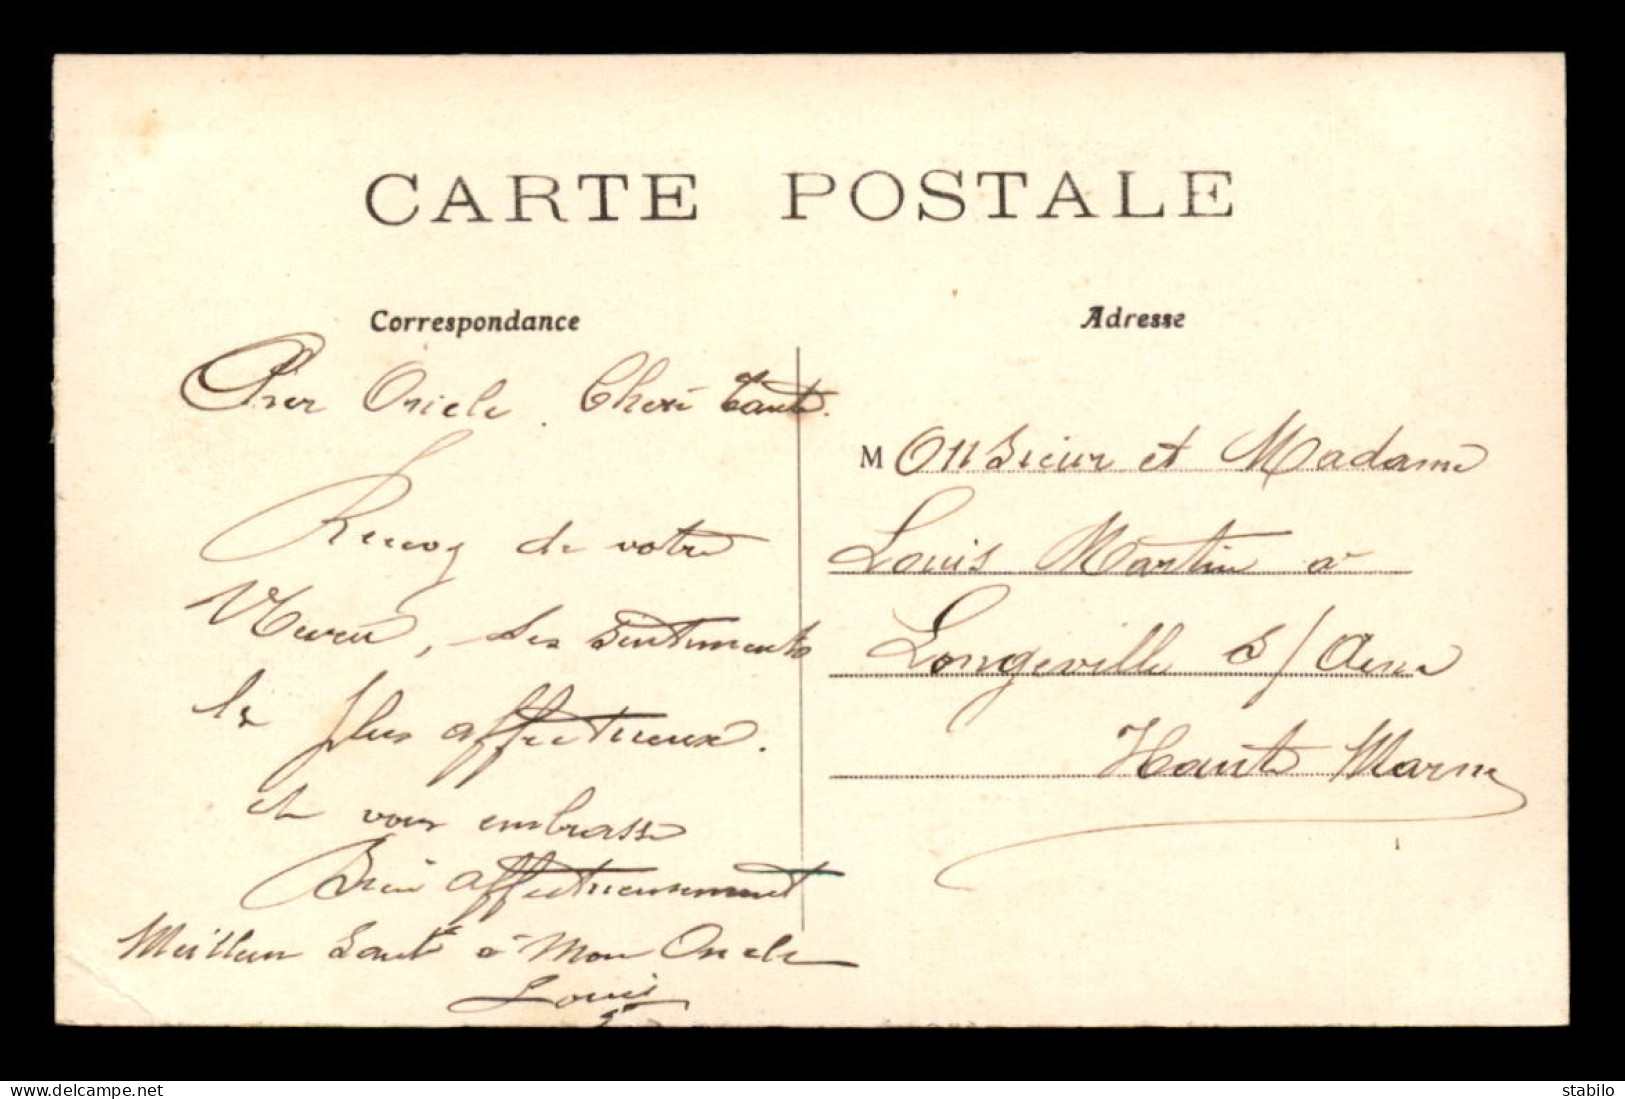 CARTE POSTALE
Correspondance
Cher Oncle. Cheri Tante.
Recevez de votre
Neveu, Ses sentiments
les plus affectueux.
et vous embrasse
Bien affectueusement
Meilleur Santé à Mon Oncle
Louis
Adresse
Monsieur et Madame
Louis Martin à
Longeville s/ Aine
Haute Marne
www.delcampe.net
stabilo